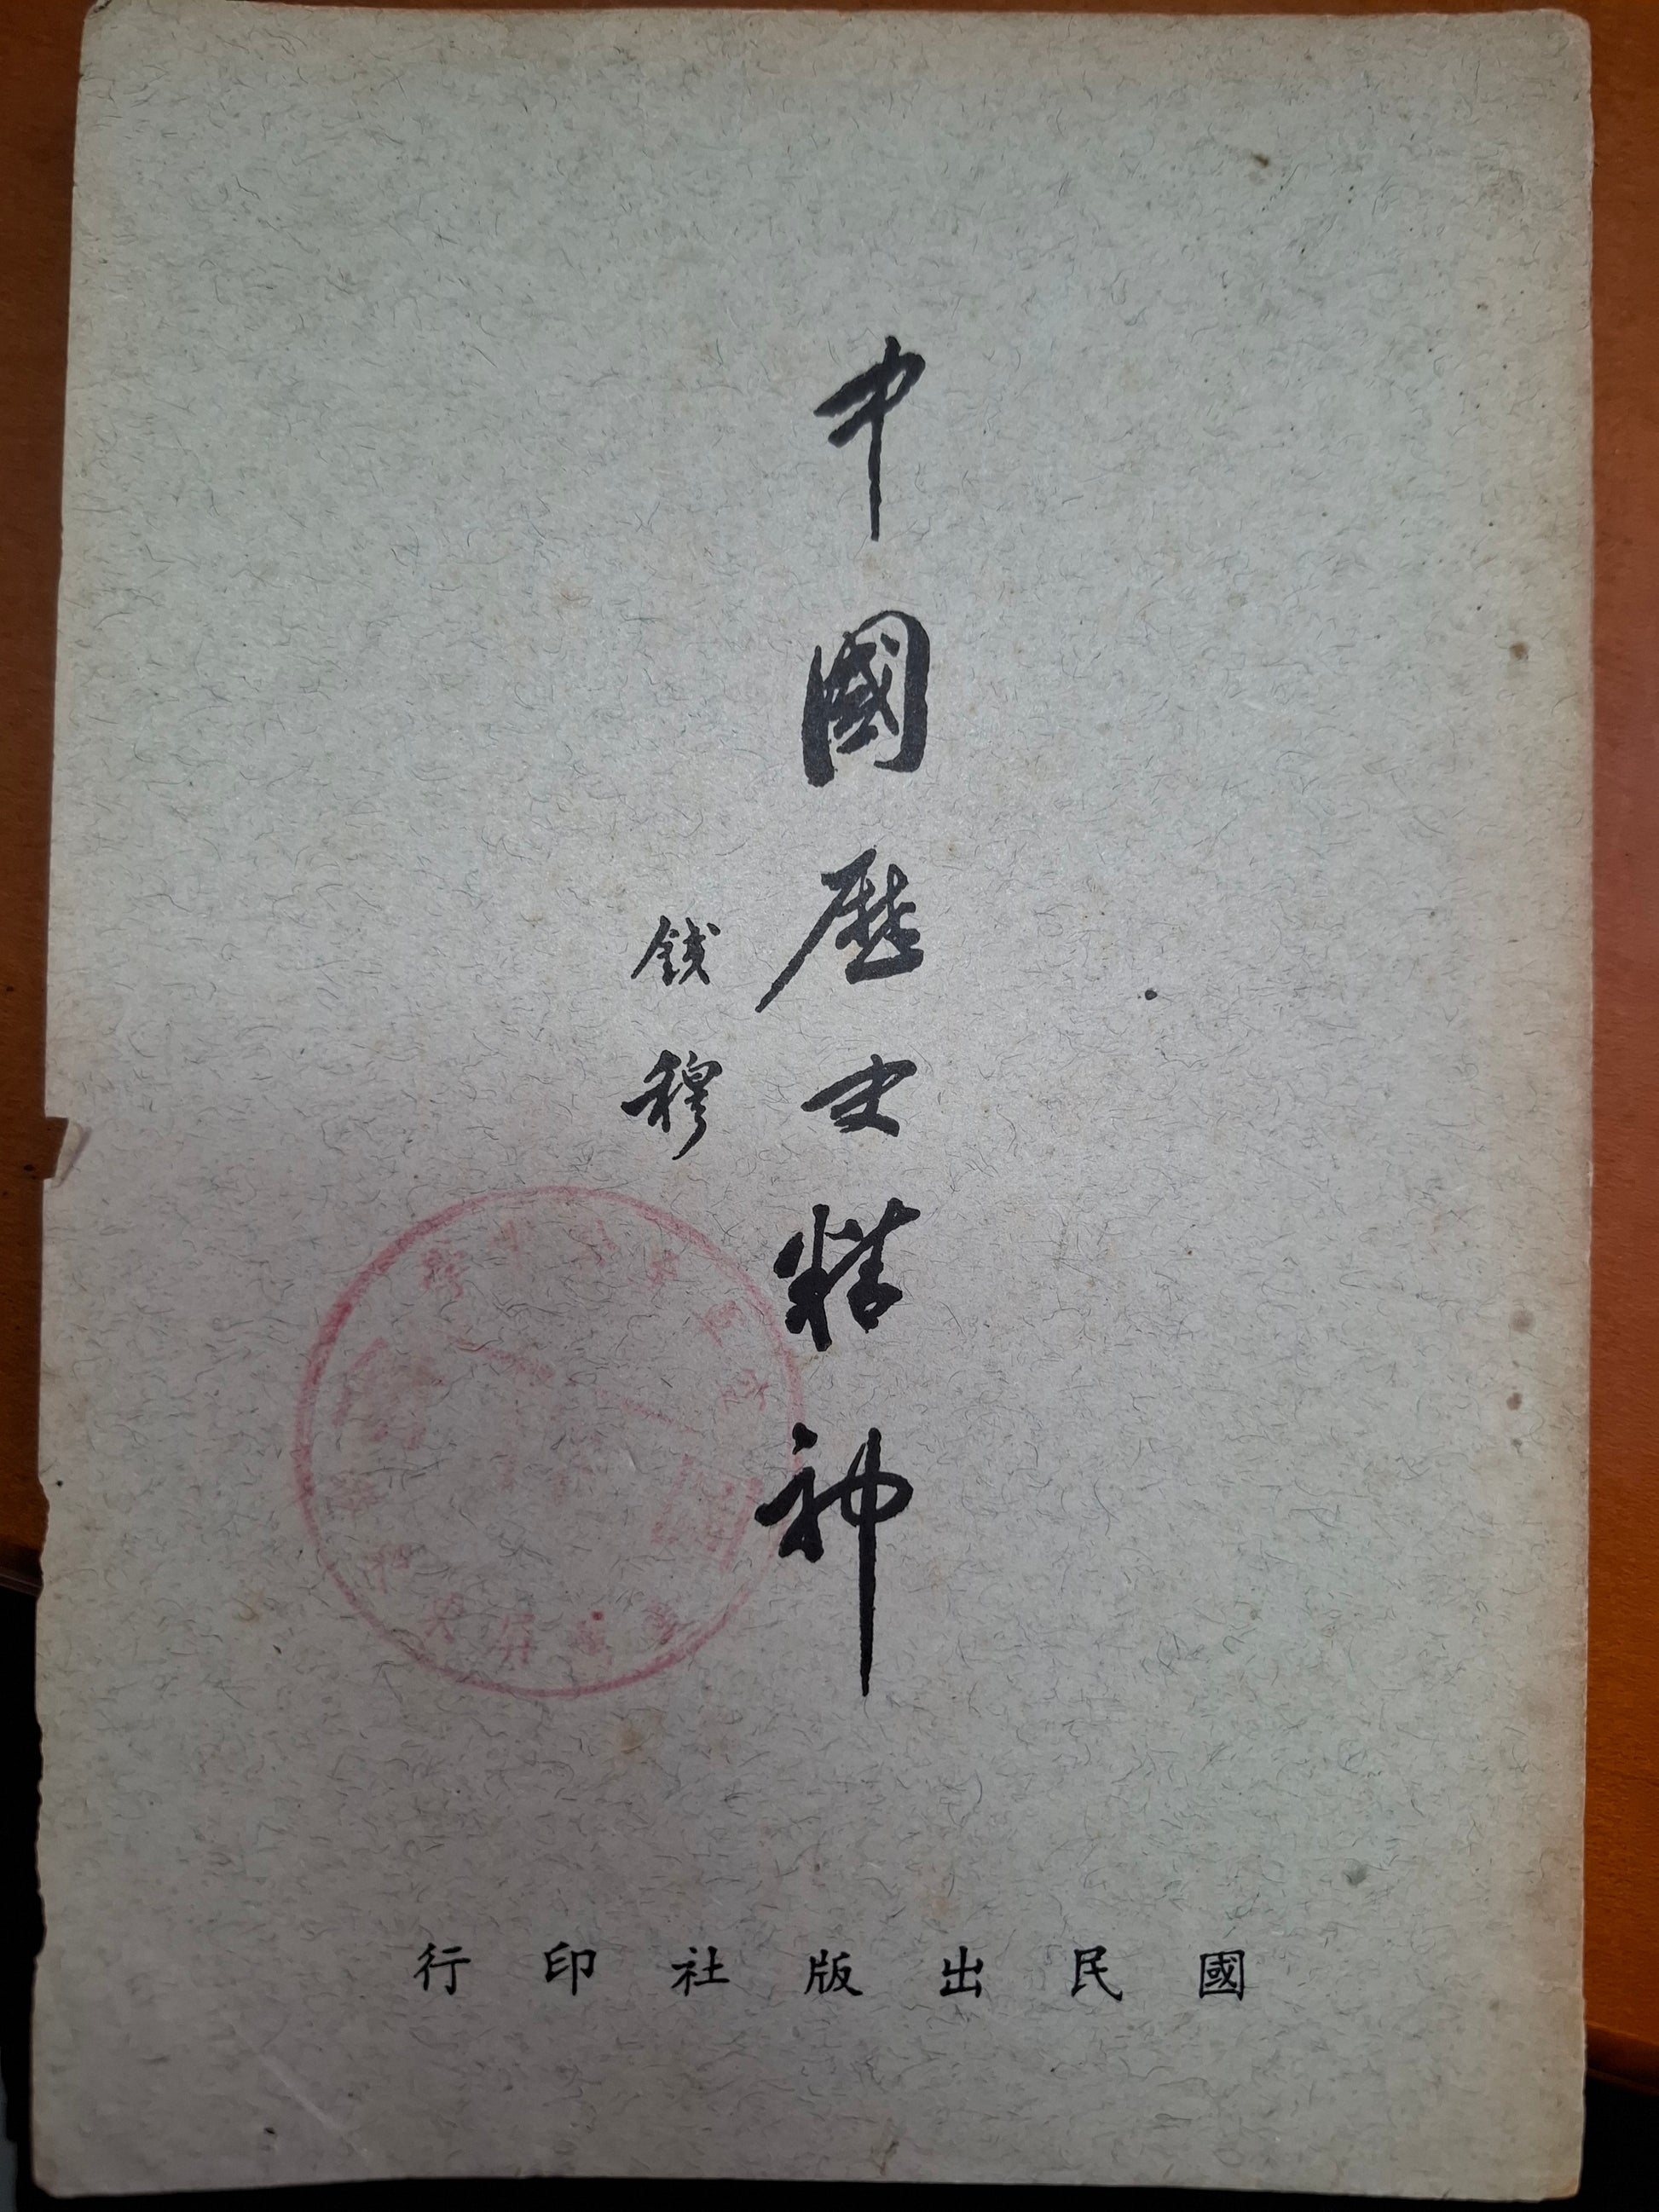 中國歷史精神
錢穆
國民出版社印行